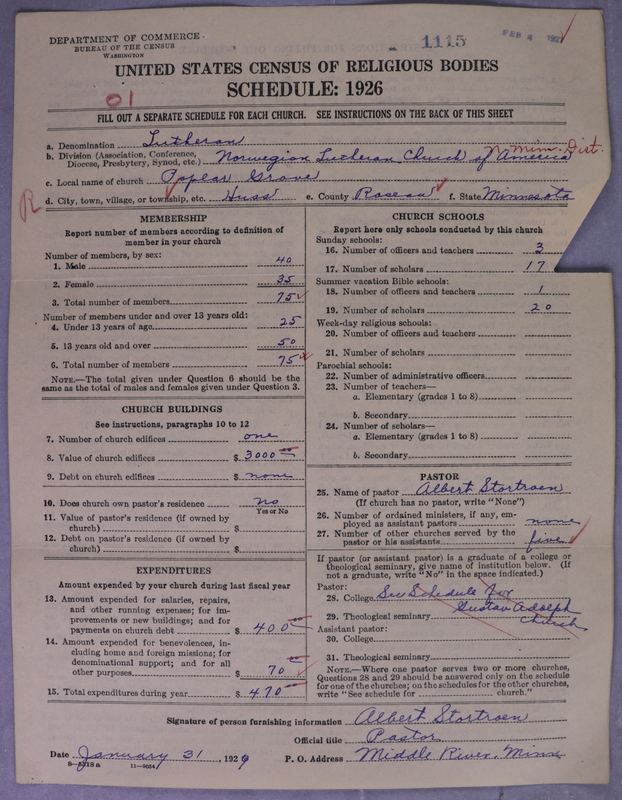 DEPARTMENT OF COMMERCE
BUREAU OF THE CENSUS
WASHINGTON
1115
FEB 4 1927
UNITED STATES CENSUS OF RELIGIOUS BODIES
SCHEDULE: 1926
01
FILL OUT A SEPARATE SCHEDULE FOR EACH CHURCH. SEE INSTRUCTIONS ON THE BACK OF THIS SHEET
a. Denomination Lutheran
b. Division (Association, Conference, Diocese, Presbytery, Synod, etc.) Norwegian Lutheran Church of America Dist.
c. Local name of church Poplar Grove
R
d. City, town, village, or township, etc. Huss e. County Roseau f. State Minnesota
MEMBERSHIP
Report number of members according to definition of
member in your church
Number of members, by sex:
1. Male 40
2. Female 35
3. Total number of members 75
Number of members under and over 13 years old:
4. Under 13 years of age 25
5. 13 years old and over 50
6. Total number of members 75
NOTE.—The total given under Question 6 should be the
same as the total of males and females given under Question 3.
CHURCH BUILDINGS
See instructions, paragraphs 10 to 12
7. Number of church edifices one
8. Value of church edifices $ 3000
9. Debt on church edifices $ none
10. Does church own pastor's residence No
Yes or No
11. Value of pastor's residence (if owned by
church) $
12. Debt on pastor's residence (if owned by
church) $
EXPENDITURES
Amount expended by your church during last fiscal year
13. Amount expended for salaries, repairs,
and other running expenses; for im-
provements or new buildings; and for
payments on church debt $ 400
14. Amount expended for benevolences, in-
cluding home and foreign missions; for
denominational support; and for all
other purposes $ 70
15. Total expenditures during year $ 470
CHURCH SCHOOLS
Report here only schools conducted by this church
Sunday schools:
16. Number of officers and teachers 3
17. Number of scholars 17
Summer vacation Bible schools:
18. Number of officers and teachers 1
19. Number of scholars 20
Week-day religious schools:
20. Number of officers and teachers
21. Number of scholars
Parochial schools:
22. Number of administrative officers
23. Number of teachers—
a. Elementary (grades 1 to 8)
b. Secondary
24. Number of scholars—
a. Elementary (grades 1 to 8)
b. Secondary
PASTOR
25. Name of pastor Albert Stortroen
(If church has no pastor, write "None")
26. Number of ordained ministers, if any, em-
ployed as assistant pastors none
27. Number of other churches served by the
pastor or his assistants five
If pastor (or assistant pastor) is a graduate of a college or
theological seminary, give name of institution below. (If
not a graduate, write "No" in the space indicated.)
Pastor:
28. College See Schedule for
29. Theological seminary Gustav Adolph
Church
Assistant pastor:
30. College
31. Theological seminary
NOTE.—Where one pastor serves two or more churches,
Questions 28 and 29 should be answered only on the schedule
for one of the churches; on the schedules for the other churches,
write "See schedule for church."
Signature of person furnishing information Albert Stortroen
Official title Pastor
Date January 31, 1926 P. O. Address Middle River, Minn
8-5318a 11-9054